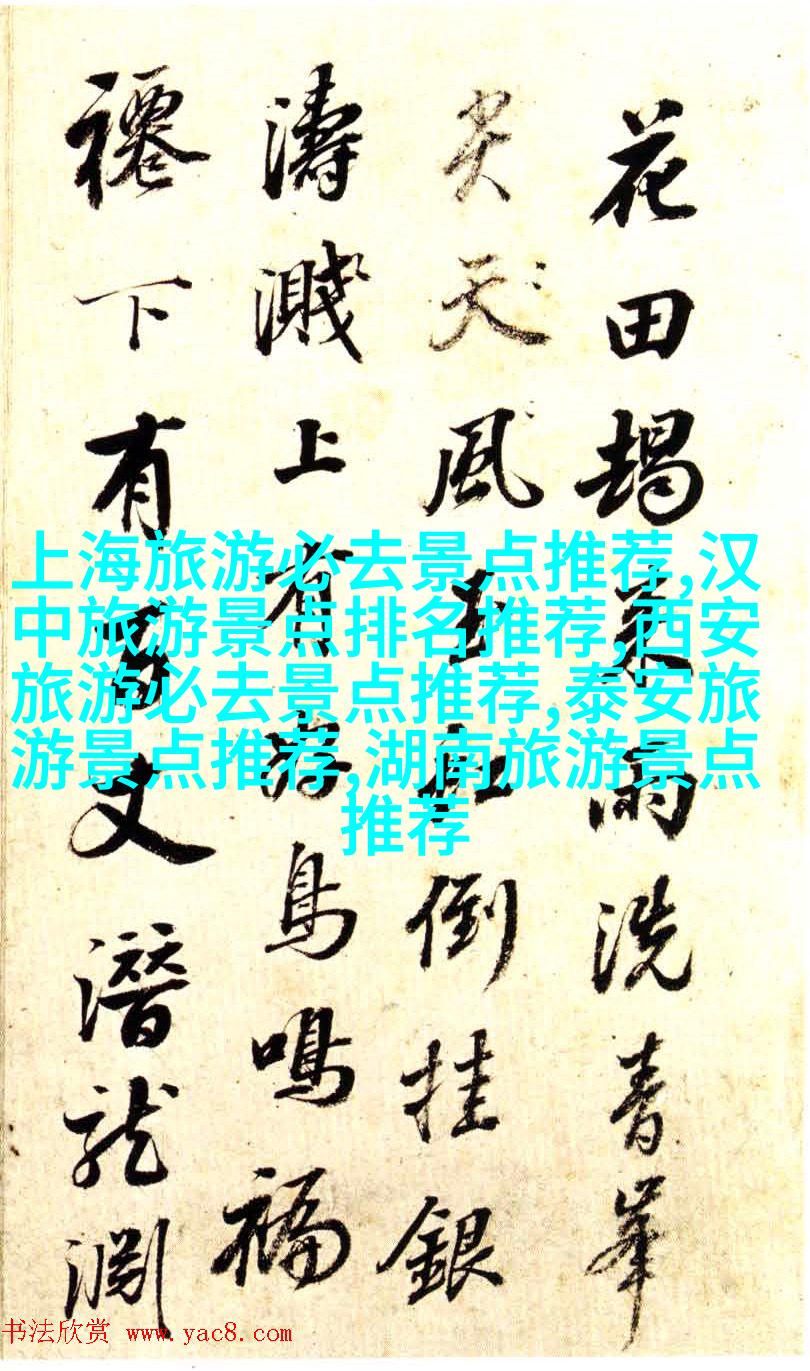 花田朅来雨洗青峯
尖天風玉虹倒挂銀
濤濺上有游鳥鳴福
禋下有百丈潛龍淵
上海旅游必去景点推荐,汉
中旅游景点排名推荐,西安
旅游必去景点推荐,泰安旅
游景点推荐,湖南旅游景点
推荐
书法欣赏 www.yac8.com